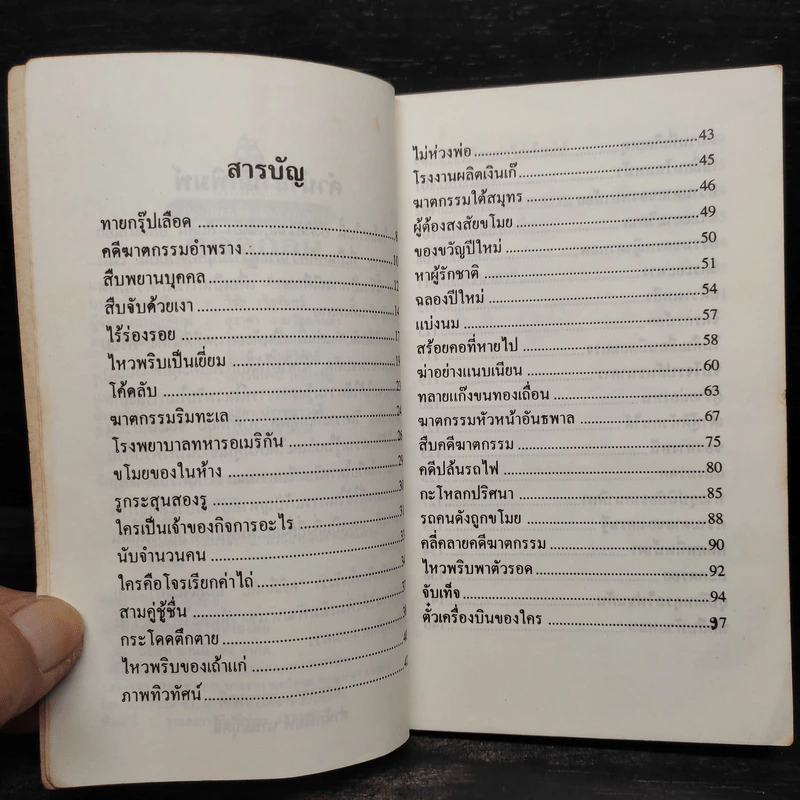 สารบัญ
ทายกรุ๊ปเลือด 8
คดีฆาตกรรมอำพราง 10
สืบพยานบุคคล 12
สืบจับด้วยเงา 14
ไร้ร่องรอย 17
ไหวพริบเป็นเยี่ยม 19
โค้ดลับ 23
ฆาตกรรมริมทะเล 24
โรงพยาบาลทหารอเมริกัน 26
ขโมยของในห้าง 29
รูกระสุนสองรู 30
ใครเป็นเจ้าของกิจการอะไร 31
นับจำนวนคน 33
ใครคือโจรเรียกค่าไถ่
สามคู่ชู้ชื่น
กระโดดตึกตาย
ไหวพริบของเถ้าแก่
ภาพทิวทัศน์
ไม่ห่วงพ่อ 43
โรงงานผลิตเงินเก๊ 45
ฆาตกรรมใต้สมุทร 46
ผู้ต้องสงสัยขโมย 49
ของขวัญปีใหม่ 50
หาผู้รักชาติ 51
ฉลองปีใหม่ 54
แบ่งนม 57
สร้อยคอที่หายไป 58
ฆ่าอย่างแนบเนียน 60
ทลายแก๊งขนทองเถื่อน 63
ฆาตกรรมหัวหน้าอันธพาล 67
สืบคดีฆาตกรรม 75
คดีปล้นรถไฟ 80
กะโหลกปริศนา 85
รถคนดังถูกขโมย 88
คลี่คลายคดีฆาตกรรม 90
ไหวพริบพาตัวรอด 92
จับเท็จ 94
ตั๋วเครื่องบินของใคร 97